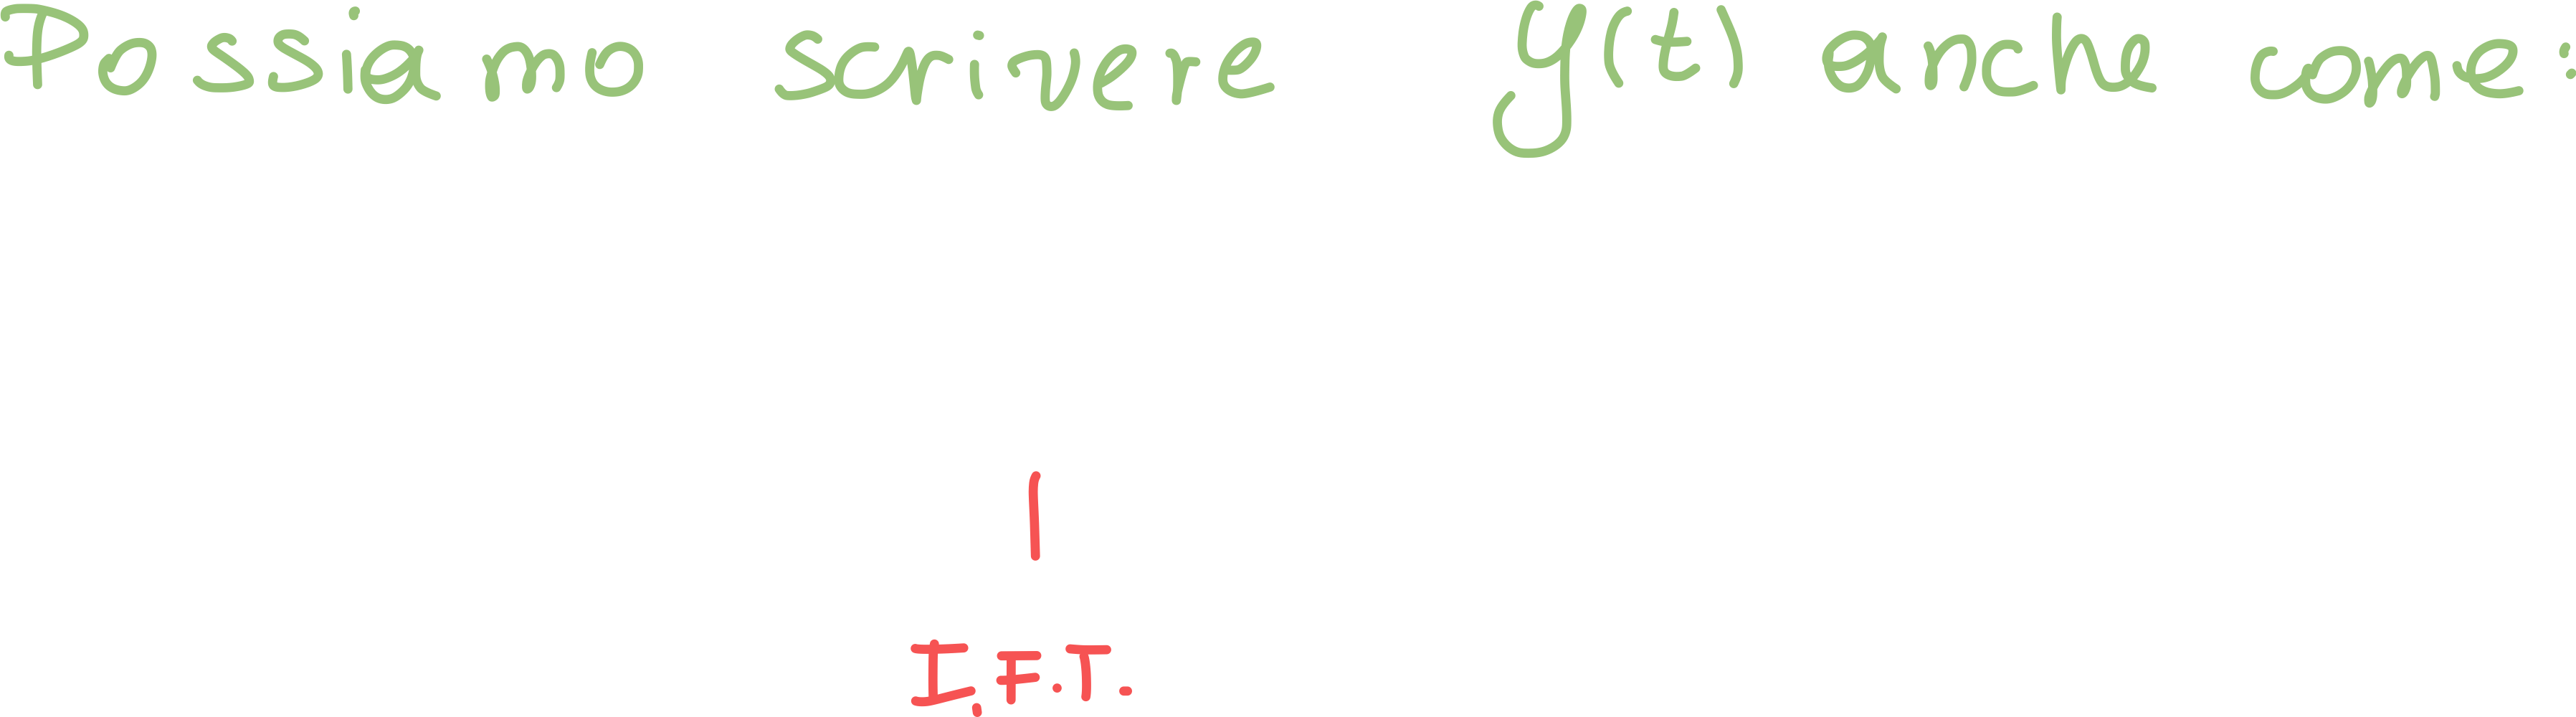 Possiamo scrivere y(t) anche come:
I.F.T.